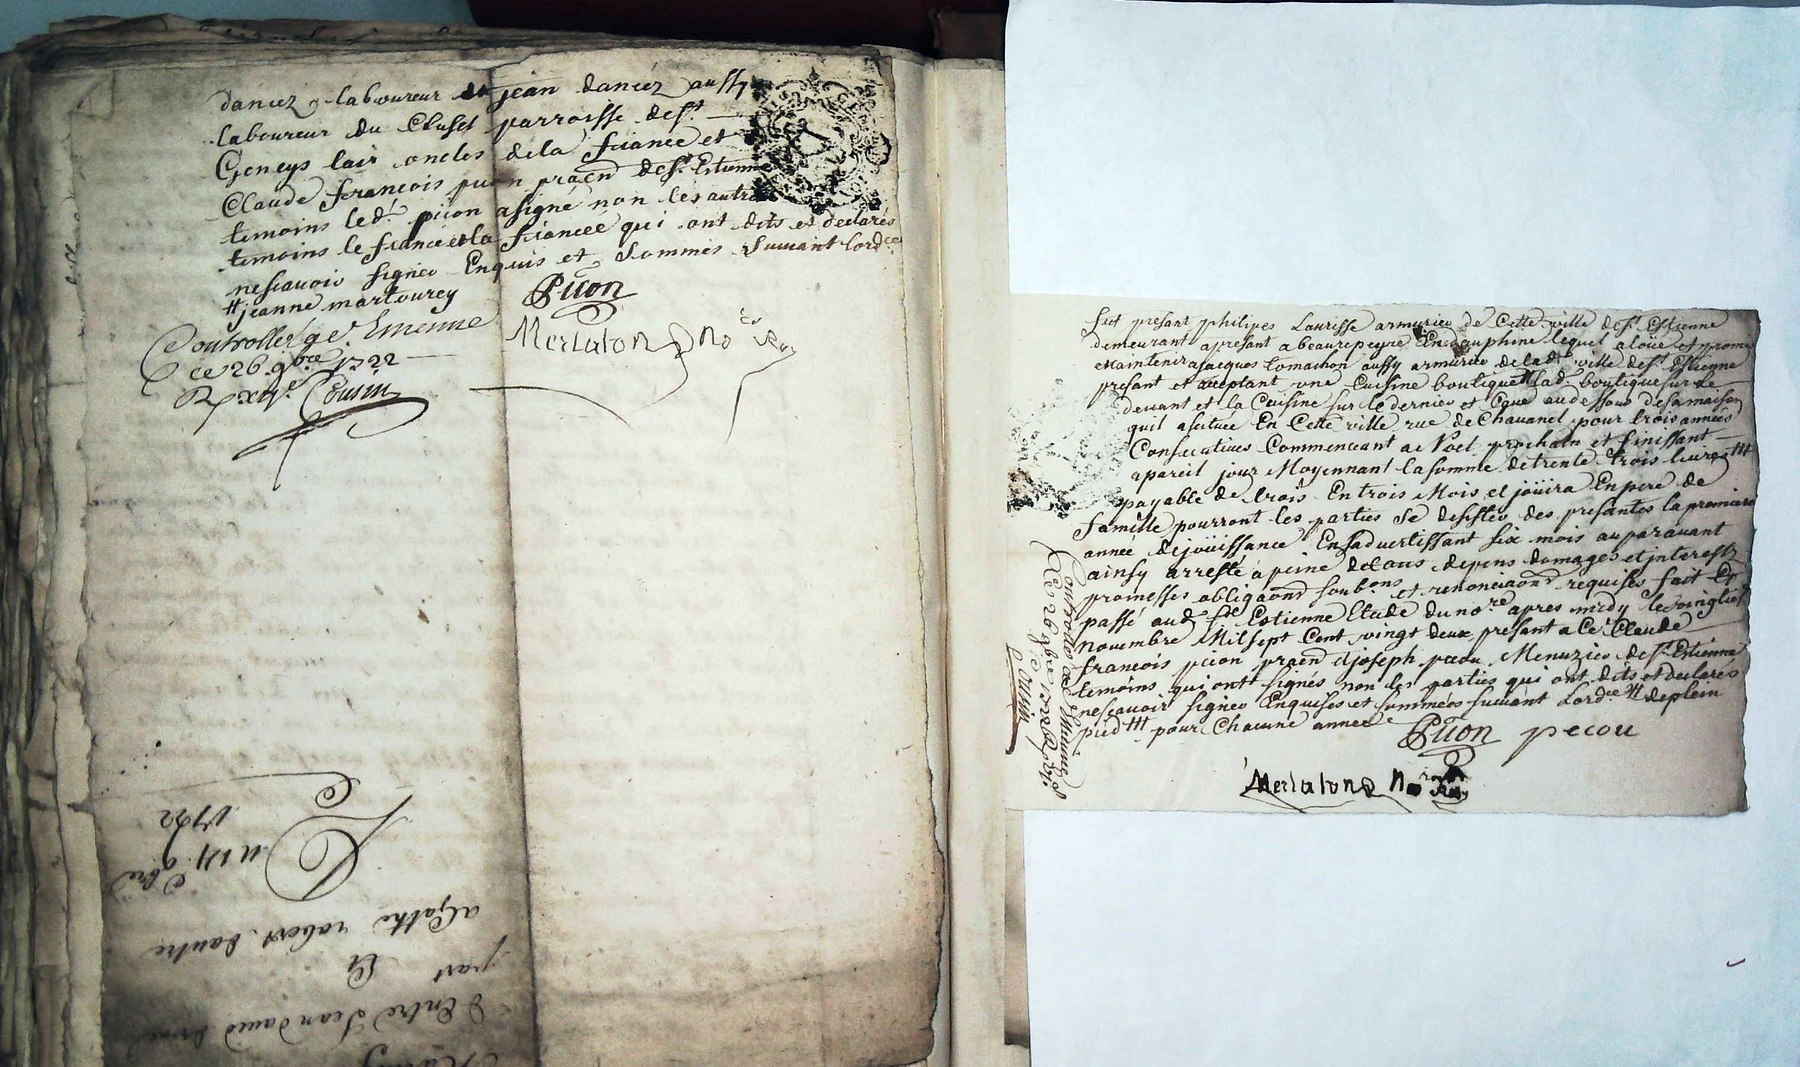 dancez laboureur et jean dancez aussy
laboureur du Cluset parroisse de st
Geneys lair oncles dela fiancée et
Claude francois picon praēn de st. Estienne
temoins led. picon a signé non les autres
temoins le fiancé et la fiancée qui ont dits et declarés
ne scavoir signer Enquis et sommés suivant lord.ce
# jeanne martourey
Controllé a st. Etienne
ce 26 9bre 1722
R xij s. Cousin
Picon
Merlaton No re Roy
Du 14 9bre
1722
Entre Jean david
part Et
agathe robert dautre
fut presant philipes Laurisse armurier de Cette ville de st Estienne
demeurant a presant a beaurepeyre En dauphine lequel a loué et promet
maintenir a jacques tomachon aussy armurier de lad. ville de st. Estienne
presant et acceptant une Cuisine boutique # lad. boutique sur le
devant et la Cuisine sur le dernier et Cave au dessous de sa maison
quil a scituée En Cette ville rue de Chavanel pour trois années
Consecutives Commencant a Noel prochain et finissant
a pareil jour Moyennant la somme de trente trois livres ##
payable de trois En trois Mois et joüira En pere de
famille pourront les parties se desister des presantes la premiere
année de joüissance En sadvertissant six mois auparavant
ainsy arresté a peine de tous depens domages et interests
promesses obligaōns soub.ons et renonciaōns requises fait Et
passé aud. st. Estienne Etude du no.re apres midy le vingt
novembre Mil sept Cent vingt deux presant a Ce Claude
francois picon praēn & joseph pecou Menuzier de st. Estienne
temoins qui ont signés non les parties qui ont dits et declarés
ne scavoir signer Enquises et sommées suivant Lord.ce # de plein
pied ## pour Chacune année
Picon pecou
Merlaton No re Roy
Controllé a st. Etienne
ce 26 9bre 1722 R
Cousin